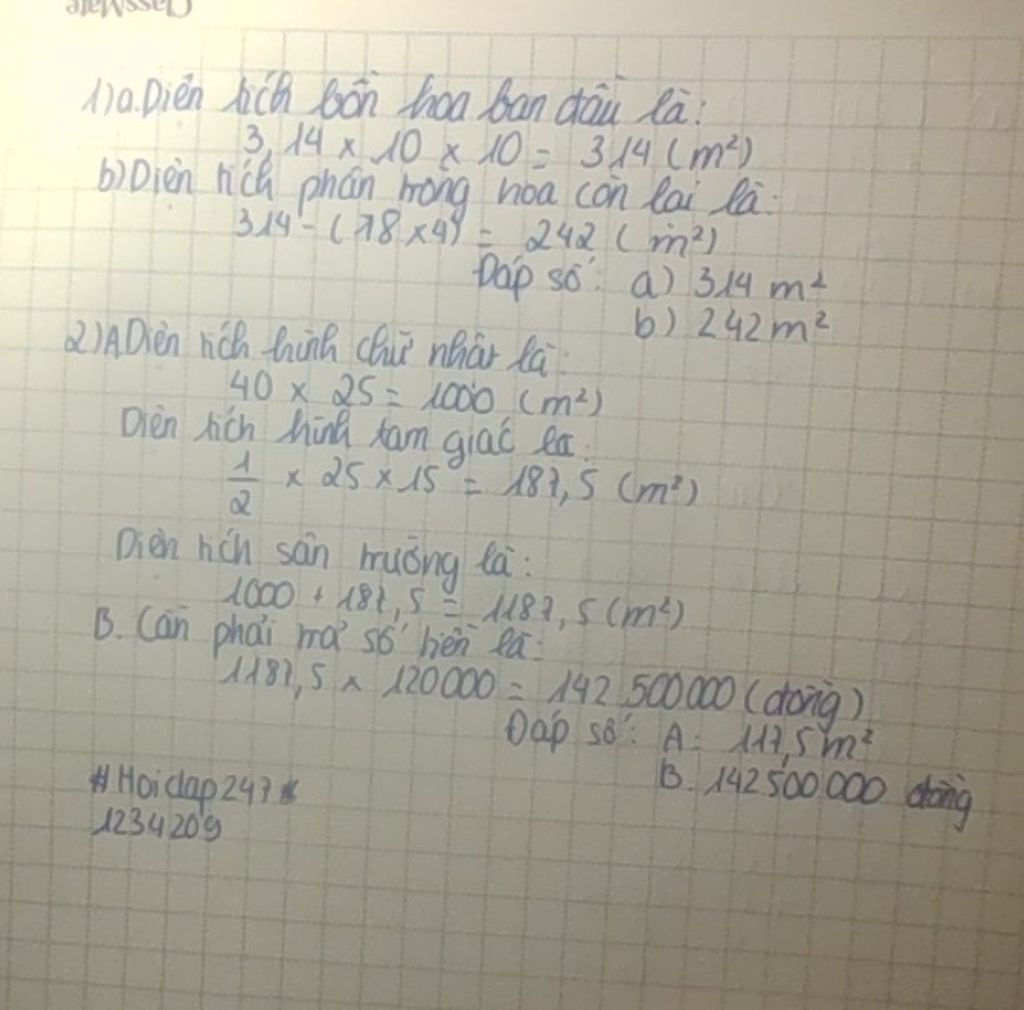 ClassMate
1)a.Diện tích bồn hoa ban đầu là:
3,14 x 10 x 10 = 314 (m²)
b)Diện tích phần trồng hoa còn lại là:
314 - (18 x 4) = 242 (m²)
Đáp số: a) 314 m²
b) 242 m²
2)A.Diện tích hình chữ nhật là:
40 x 25 = 1000 (m²)
Diện tích hình tam giác là:
1/2 x 25 x 15 = 187,5 (m²)
Diện tích sân trường là:
1000 + 187,5 = 1187,5 (m²)
B. Cần phải trả số tiền là:
1187,5 x 120000 = 142 500 000 (đồng)
Đáp số: A: 117,5 m²
B. 142 500 000 đồng
#Hoidap247*
1234209